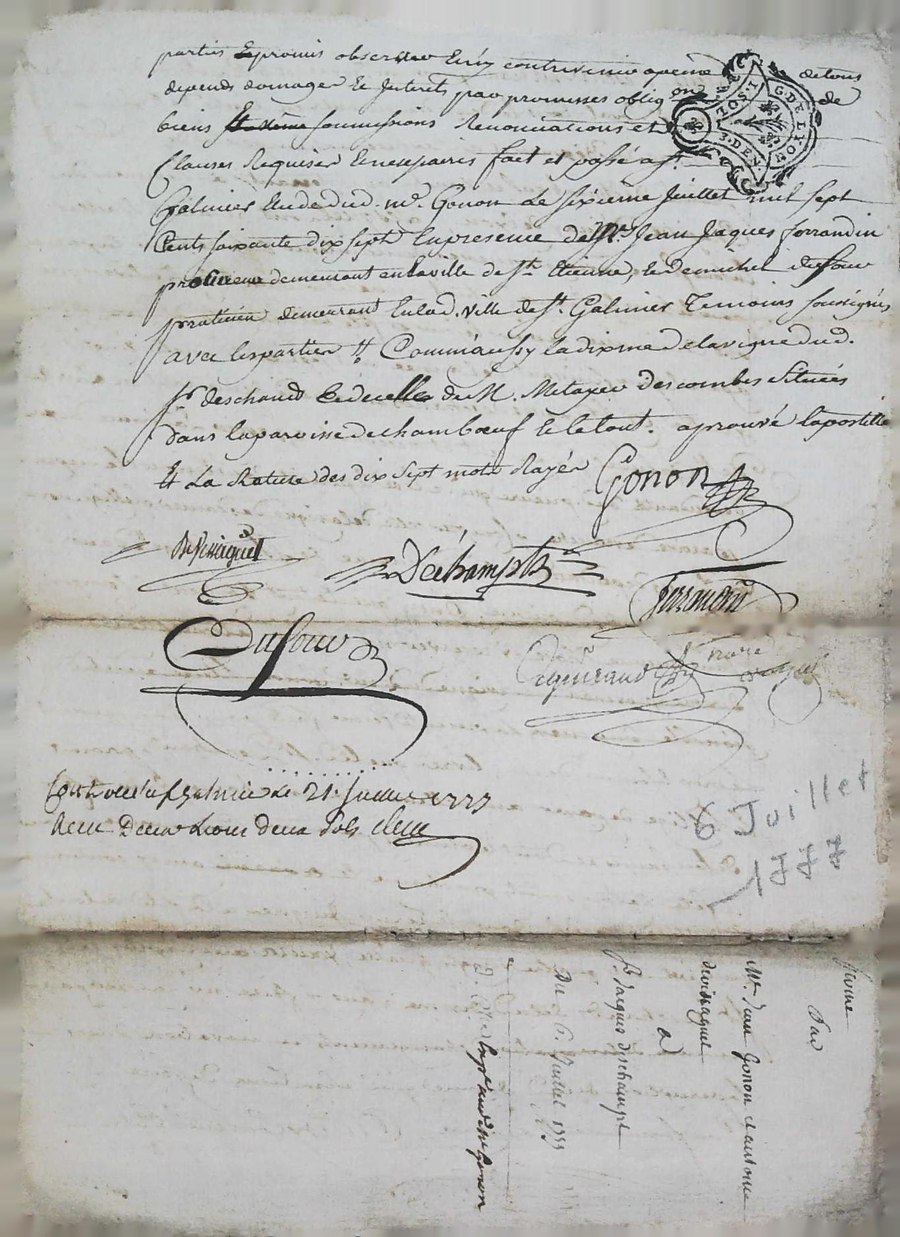 parties promis observer contrevenir apeine de tous
depends domages & Interets par promesses oblig on de
biens soumissions Renonciations et
Clauses Requises & necessaires fait et passé a St.
Galmier Etude dud. mr. Gonon le sixième Juillet mil sept
Cents soixante dix sept En presence de Mr. Jean Jaques ferrandin
procureur demeurant en la ville de St. Etienne, & de michel dufour
praticien demeurant En lad. ville de St. Galmier Temoins soussignés
avec les parties Comm' aussy la dixme de la vigne dud.
Sr. deschand & de celle de M. Metayer des combes Situées
dans la paroisse de chambœuf & le tout. aprouvé l'apostille
Et La Rature des dix sept mots Rayés
Gonon
Dechampt
ferrandin
Dufour
nore
G. DE LYON
1 SOL
3. DEN
Controllé a St Galmier Le 21 Juillet 1777
Recu Deux Livres Deux Sols
6 Juillet
1777
ferme
Par
Mrs Jean Gonon et antoine
devissaguet
a
Sr. Jacques deschampt
Du 6. Juillet 1777